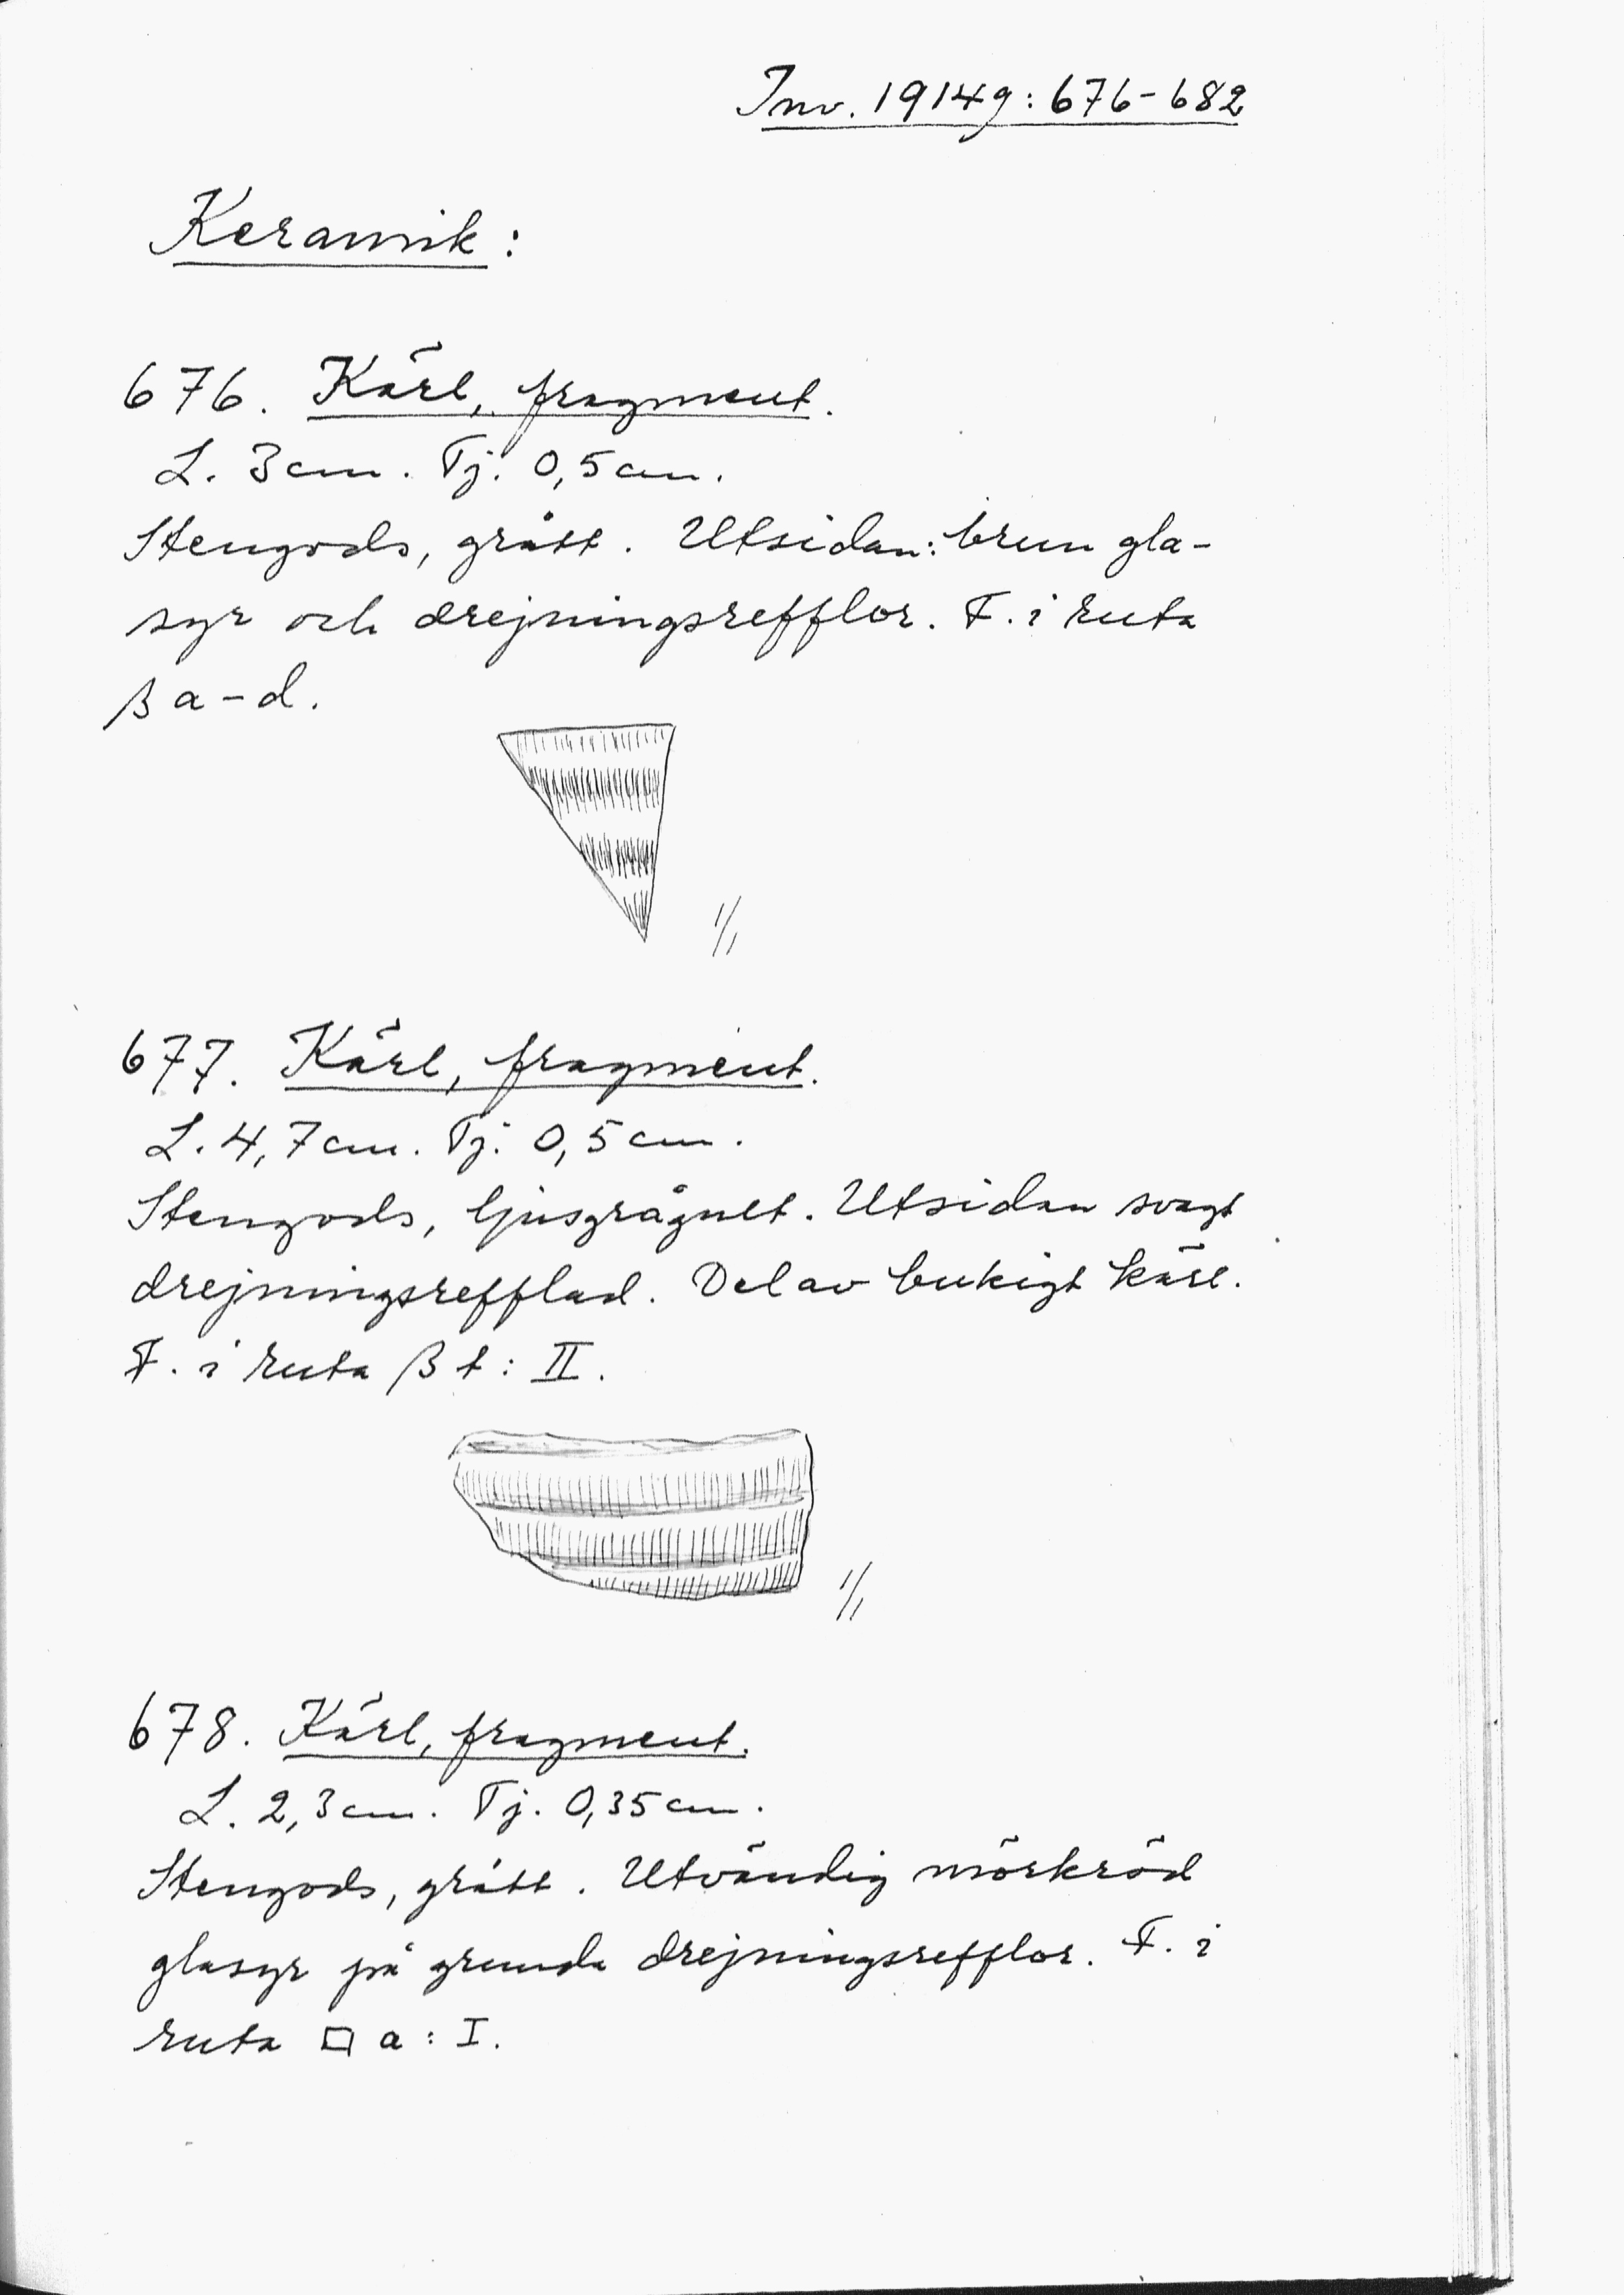 Inv. 19149: 676-682
Keramik:
676. Kärl, fragment.
L. 3 cm. Tj. 0,5 cm.
Stengods, grått. Utsidan: brun gla-
syr och drejningsrefflor. F. i ruta
β a-d.
1/1
677. Kärl, fragment.
L. 4,7 cm. Tj. 0,5 cm.
Stengods, ljusgrågult. Utsidan svagt
drejningsrefflad. Del av bukigt kärl.
F. i ruta β t: II.
1/1
678. Kärl, fragment.
L. 2,3 cm. Tj. 0,35 cm.
Stengods, grått. Utvändig mörkröd
glasyr på grunda drejningsrefflor. F. i
ruta □ a: I.